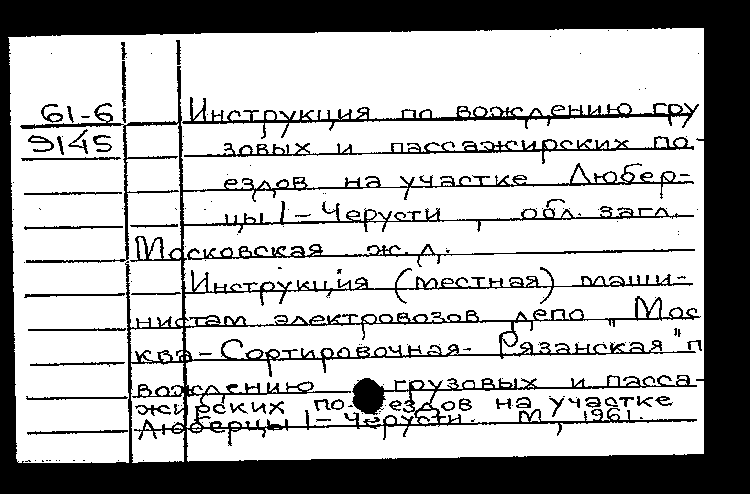 61-6 Инструкция по вождению гру
9145 зовых и пассажирских по-
ездов на участке Любер-
цы I – Черусти , обл. загл.
Московская ж. д.
Инструкция (местная) маши-
нистам электровозов депо „Мос
ква-Сортировочная-Рязанская" п
вождению грузовых и пасса-
жирских поездов на участке
Люберцы I – Черусти. М., 1961.